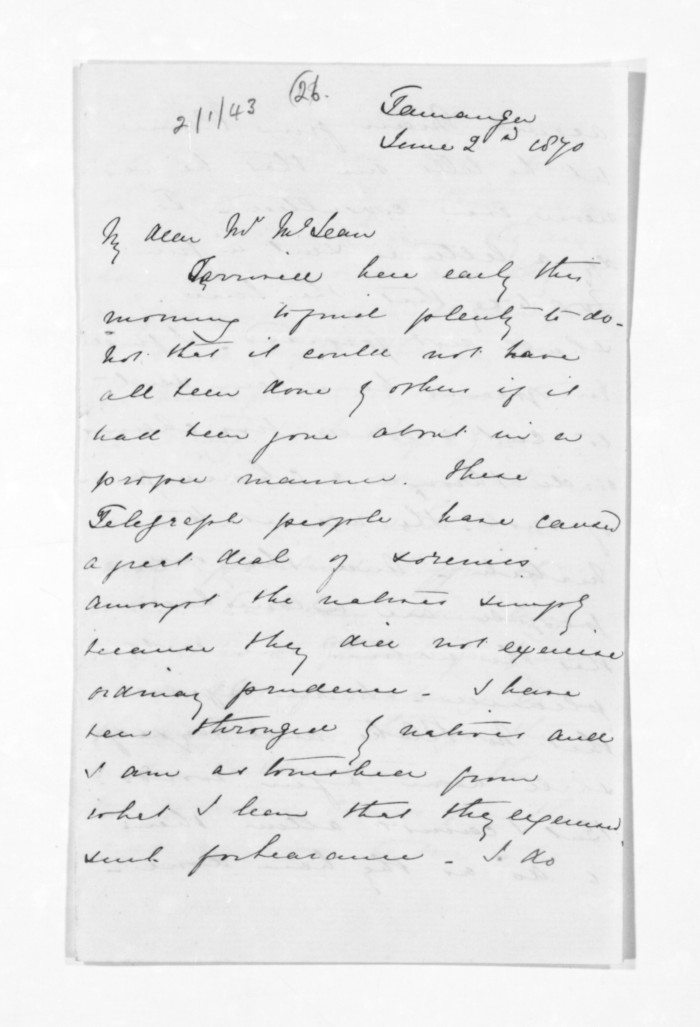 2/1/43 (26.
Tauranga
June 2nd 1870
My dear Mr McLean
I arrived here early this
morning to find plenty to do -
Not that it could not have
all been done by others if it
had been gone about in a
proper manner. These
Telegraph people have caused
a great deal of soreness
amongst the natives simply
because they did not exercise
ordinary prudence - I have
been thronged by natives and
I am astonished from
what I learn that they exercised
such forbearance - I do